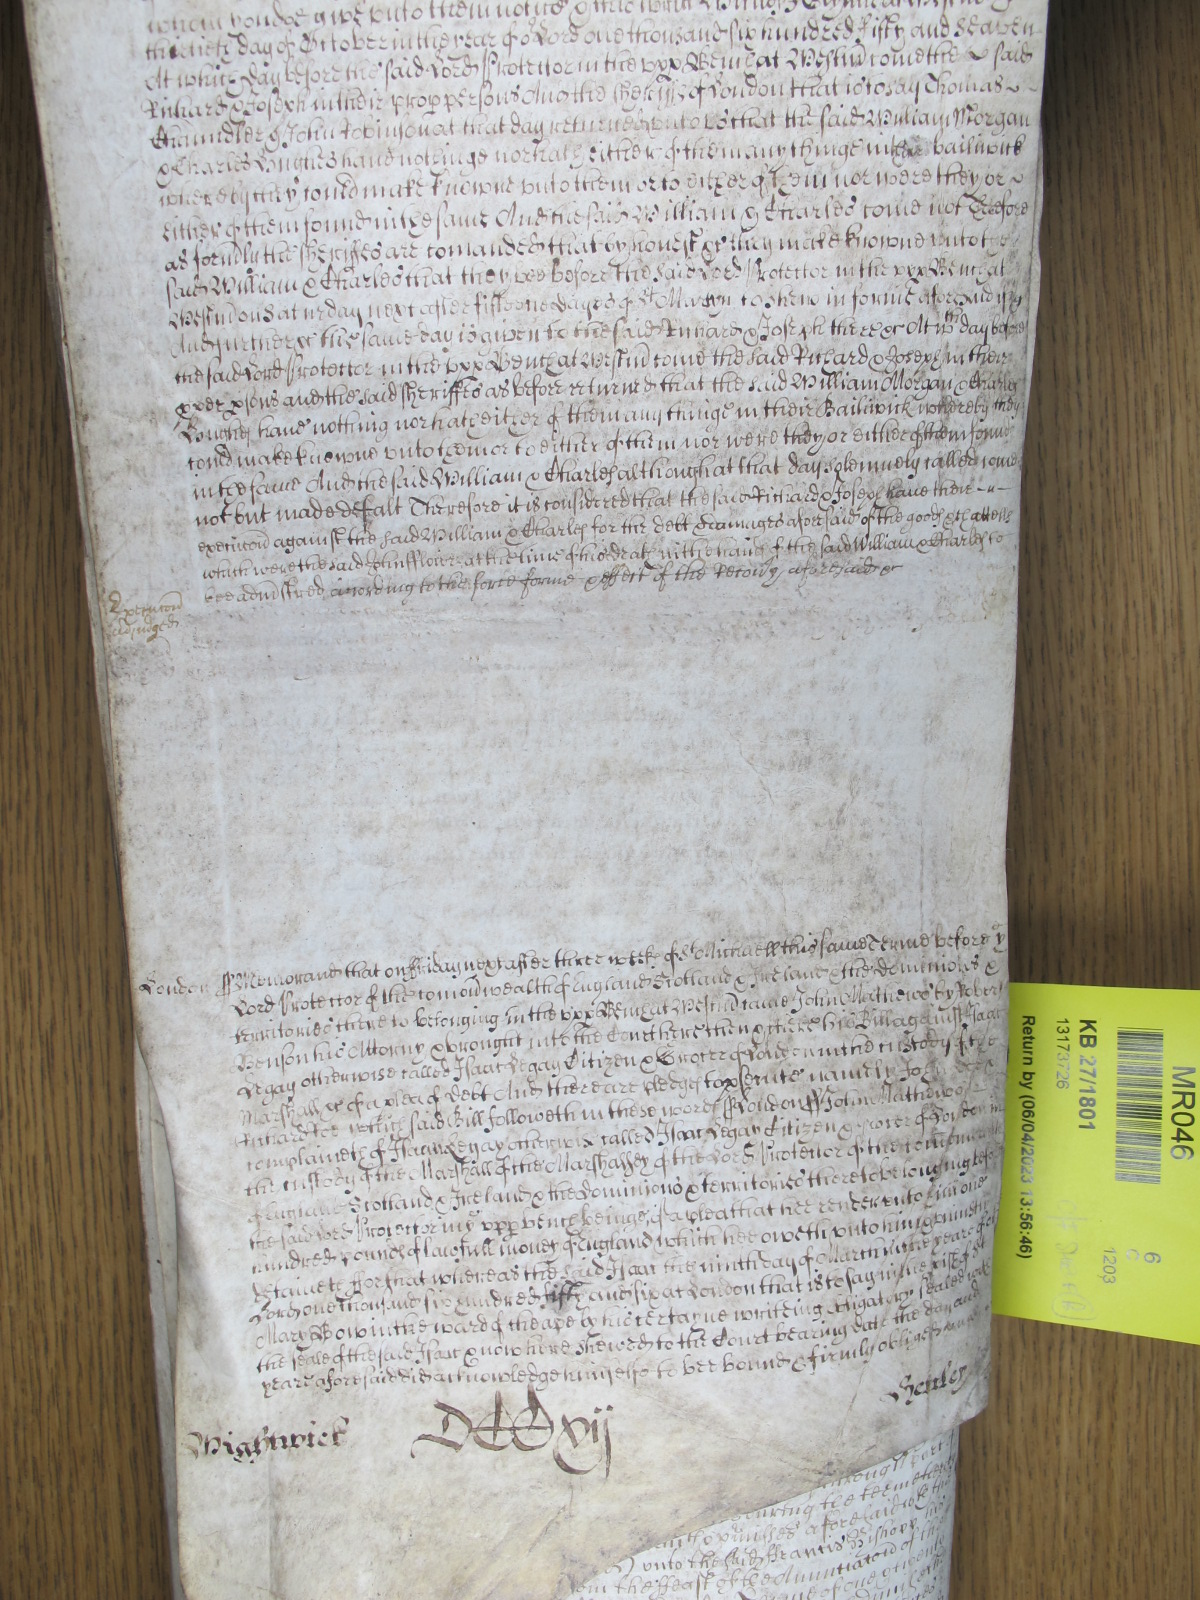 whom you doe give unto them notice & this writt Witnes
thirtieth day of October in the year of or Lord one thousand six hundred fifty and seaven
At which day before the said Lord Protector in the vpp Bench at Westmr come the said
Richard & Joseph in their propp persons And the sheriffs of London that is to say Thomas
Chaundler & John Robinson at that day returned unto us that the said William Morgan
& Charles Hughes have nothinge nor hath either of them any thinge in their bailiwick
whereby they could make knowne unto them or to either of them nor were they or
either of them found in the same And the said William & Charles come not Therefore
as formerly the sheriffes are comanded that by honest &c they make knowne unto the
said William & Charles that they bee before the said Lord Protector in the vpp Bench at
Westmr on Saturday next after fifteene dayes of St Martyn to shew in forme aforesaid if
And further &c the same day is given to the said Richard & Joseph there &c At wch day before
the said Lord Protector in the vpp Bench at Westmr come the said Richard & Joseph in their
pper psons and the said sheriffes as before returned that the said William Morgan & Charles
Hughes have nothing nor hath either of them any thinge in their Bailiwick whereby they
could make knowne unto them or to either of them nor were they or either of them found
in the same And the said William & Charles although at that day solemnely called come
not but made default Therefore it is considered that the said Richard & Joseph have their
execucon against the said William & Charles for the debt & damages aforesaid of the goods & chattells
which were the said John fflower at the time of his death in the hands of the said William & Charles to
bee adminstred according to the force forme & effect of the Recovy aforesaid &c
Execucon
adjudged
London ss Memorand that on ffriday next after three weeks of St Michaell this same Terme before ye
Lord Protector of the comon wealth of England Scotland & Ireland & the dominions &
territories thereto belonging in the vpp Bench at Westmr came John Mathewe by Robert
Benson his Attorny & brought into the Court here then & there his Bill against Isaac
Legay otherwise called Isaac Legay Citizen & Grocer of London in the custody of the
Marshall &c of a plea of debt And there are pledges to psecute namely John
Richard Roe which said Bill followeth in these words ss London ss John Mathewe
complaineth of Isaac Legay otherwise called Isaac Legay Citizen & Grocer of London in
the custody of the Marshall of the Marshalsey of the Lord Protector of the comonwealth
of England Scotland & Ireland & the dominions & territories thereto belonging before
the said Lord Protector in ye vpp bench beinge of a plea that hee render unto him one
hundred pounds of lawfull money of England which hee oweth unto him & uniustly
detaineth ffor that whereas the said Isaac the ninth day of March in the yeare of or
Lord one thousand six hundred fifty and six at London that is to say in the parish of St
Mary Bow in the ward of Cheape by his certayne writeing obligatory sealed with
the seale of the said Isaac & now here shewed to the Court bearing date the day and
yeare aforesaid did acknowledge himselfe to bee bound & firmely obliged
Wightwick
DCCxij
through
during the terme
aforesaid
unto the said ffrancis Bishopp
the ffeast of the Annunciacon of
of one
MR046
6
C
1203
KB 27/1801
13173726
Return by (06/04/2023 13:56:46)